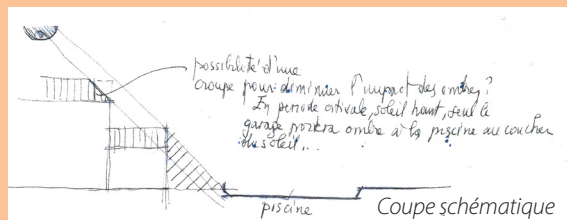 possibilité d'une
croupe pour diminuer l'impact des ombres?
En periode estivale, soleil haut, seul le
garage portera ombre à la piscine au coucher
du soleil...
piscine
Coupe schématique